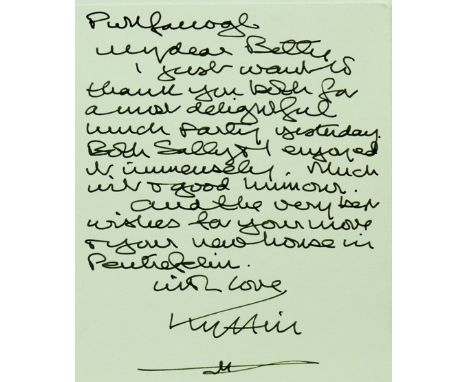 Pwllfanogl
My dear Betty,
I just want to
thank you both for
a most delightful
lunch party yesterday.
Both Sally & I enjoyed
it immensely. Much
wit & good humour.
And the very best
wishes for your move
& your new house in
Pentrefelin.
with love
Kyffin